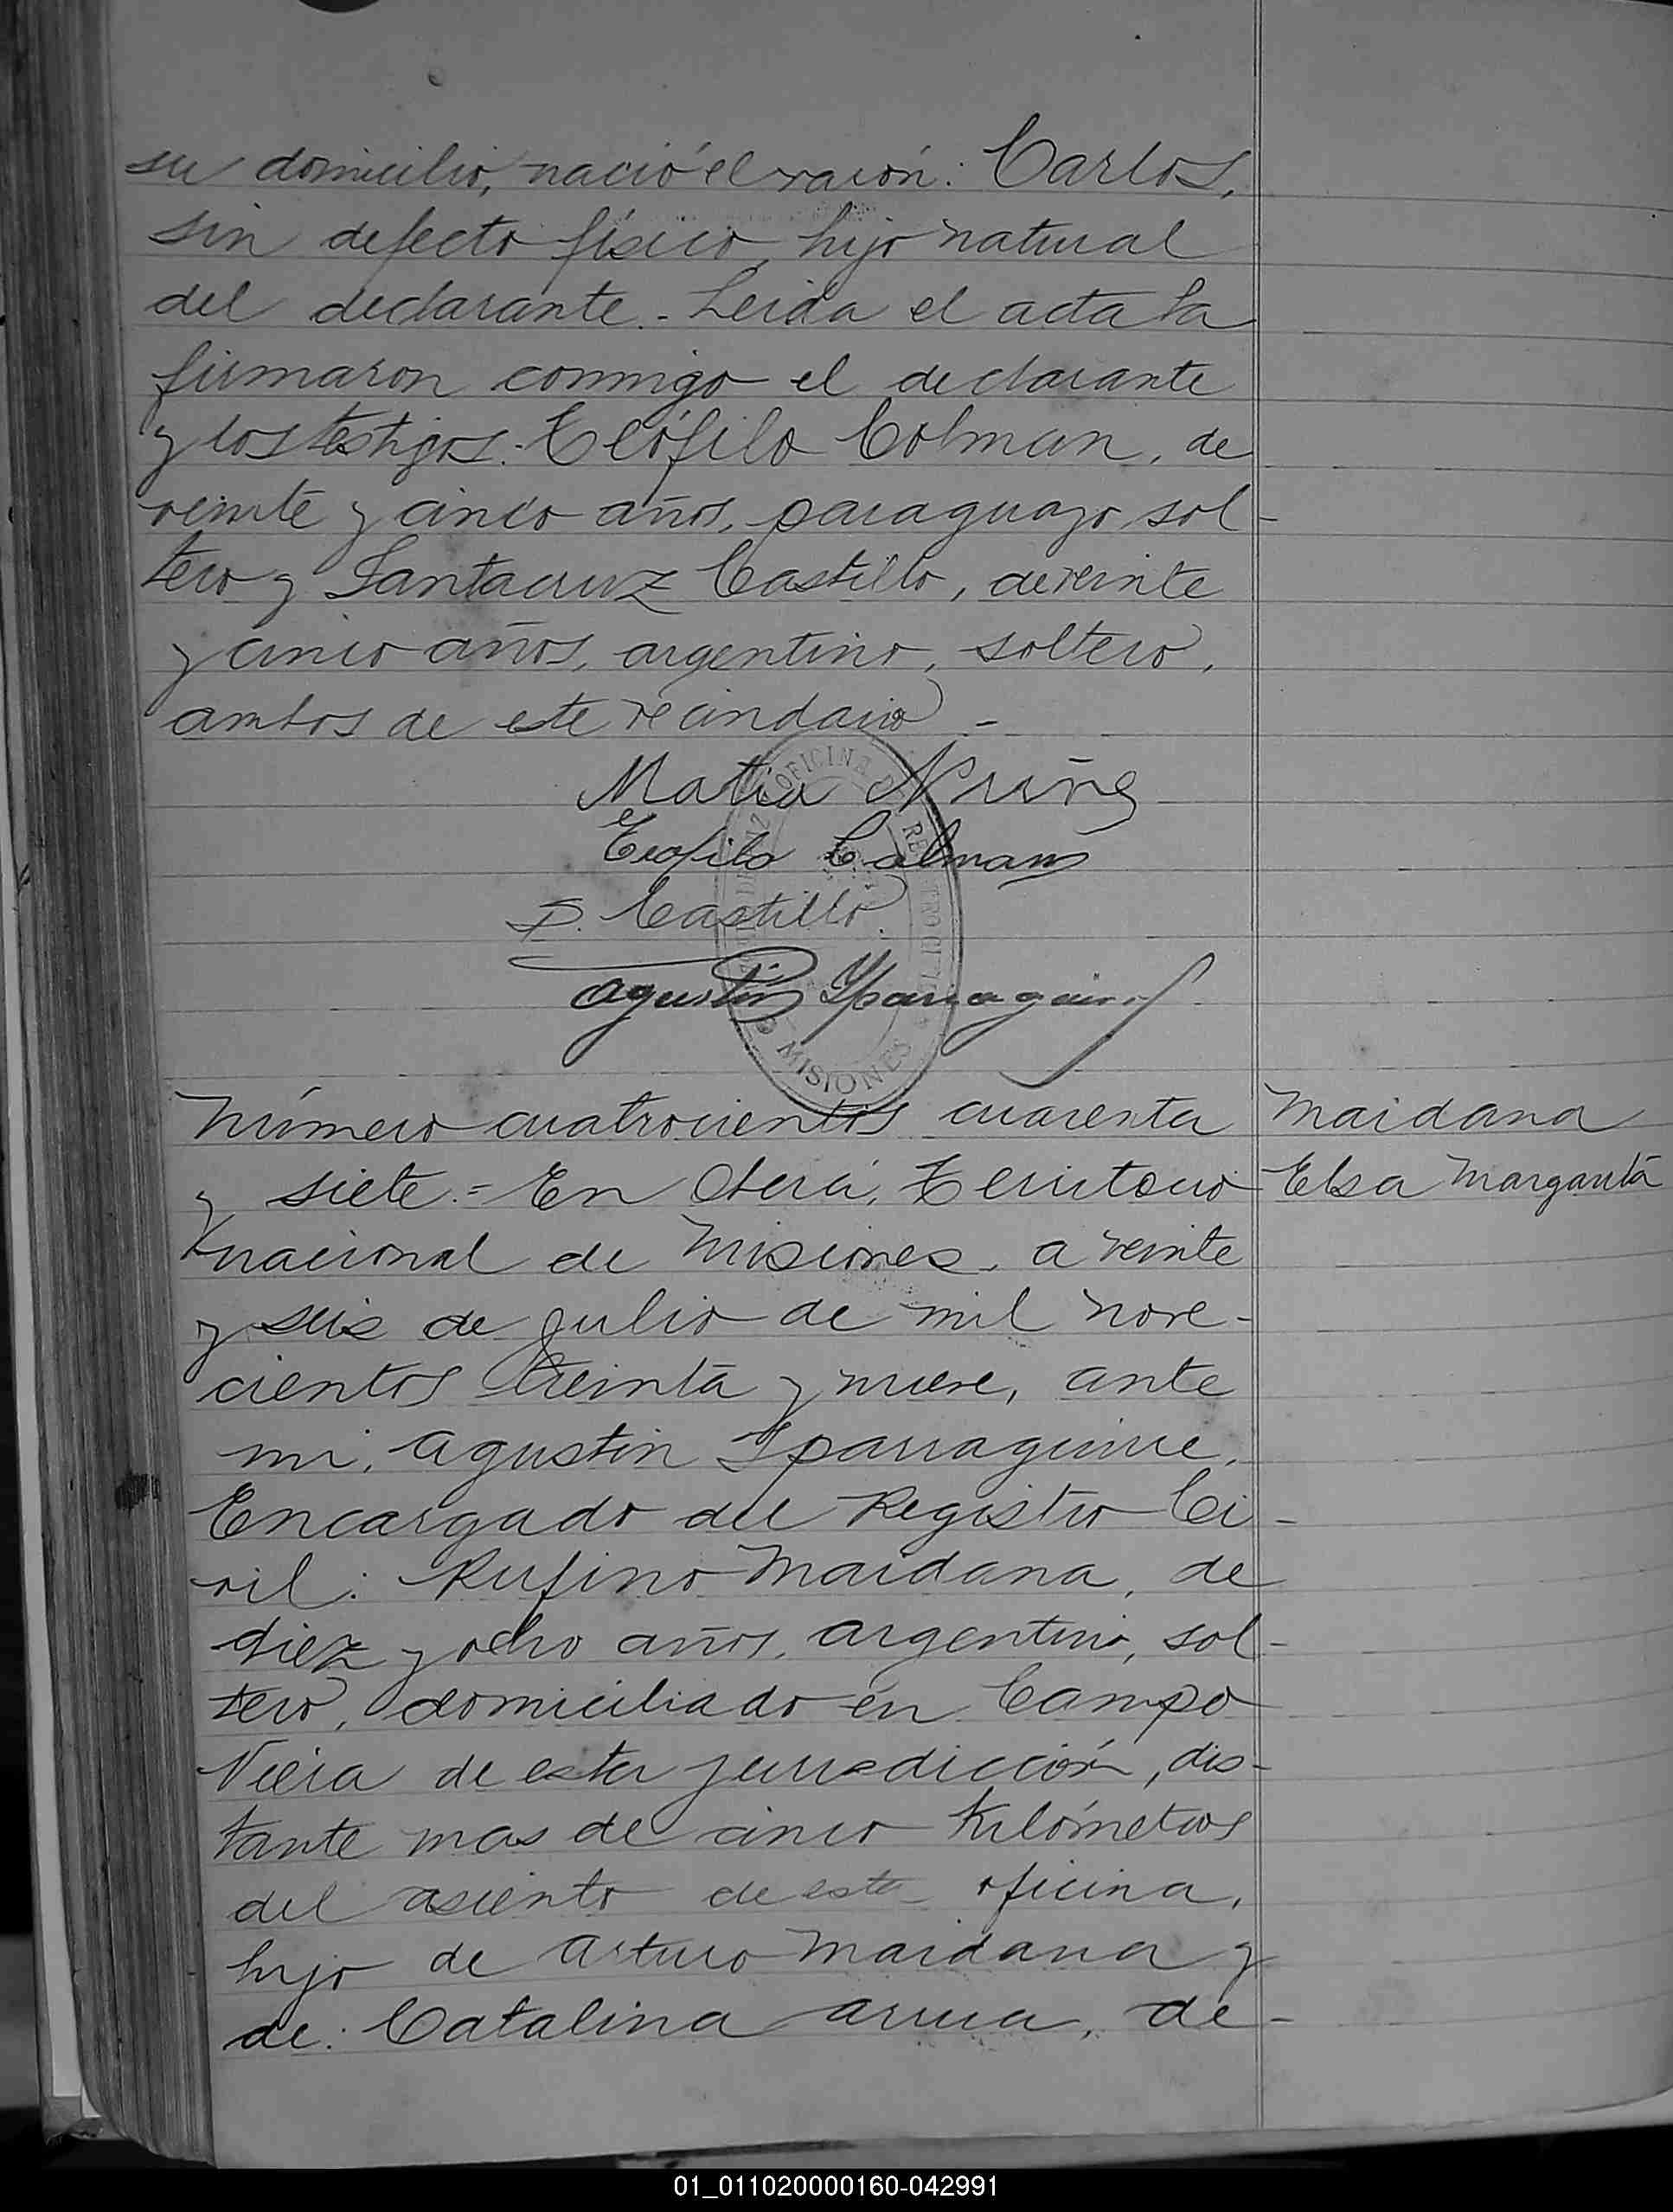 su domicilio, nació el varón: Carlos,
sin defecto físico, hijo natural
del declarante.- Leida el acta la
firmaron conmigo el declarante
y los testigos: Teófilo Colman, de
veinte y cinco años, paraguayo, sol-
tero y Santacruz Castillo, de veinte
y cinco años, argentino, soltero,
ambos de este vecindario -
Matia Nuñez
Teofilo Colman
S. Castillo
Agustin Yparraguirre
OFICINA REGISTRO CIVIL
MISIONES
Número cuatrocientos cuarenta
y siete.= En Oberá, Territorio
nacional de Misiones, a veinte
y seis de Julio de mil nove-
cientos treinta y nueve, ante
mi, Agustin Yparraguirre,
Encargado del Registro Ci-
vil: Rufino Maidana, de
diez y ocho años, argentino, sol-
tero, domiciliado en Campo
Viera de esta jurisdicción, dis-
tante mas de cinco Kilómetros
del asiento de esta oficina,
hijo de Arturo Maidana y
de: Catalina Arrua, de-
Maidana
Elsa Margarita
01_011020000160-042991